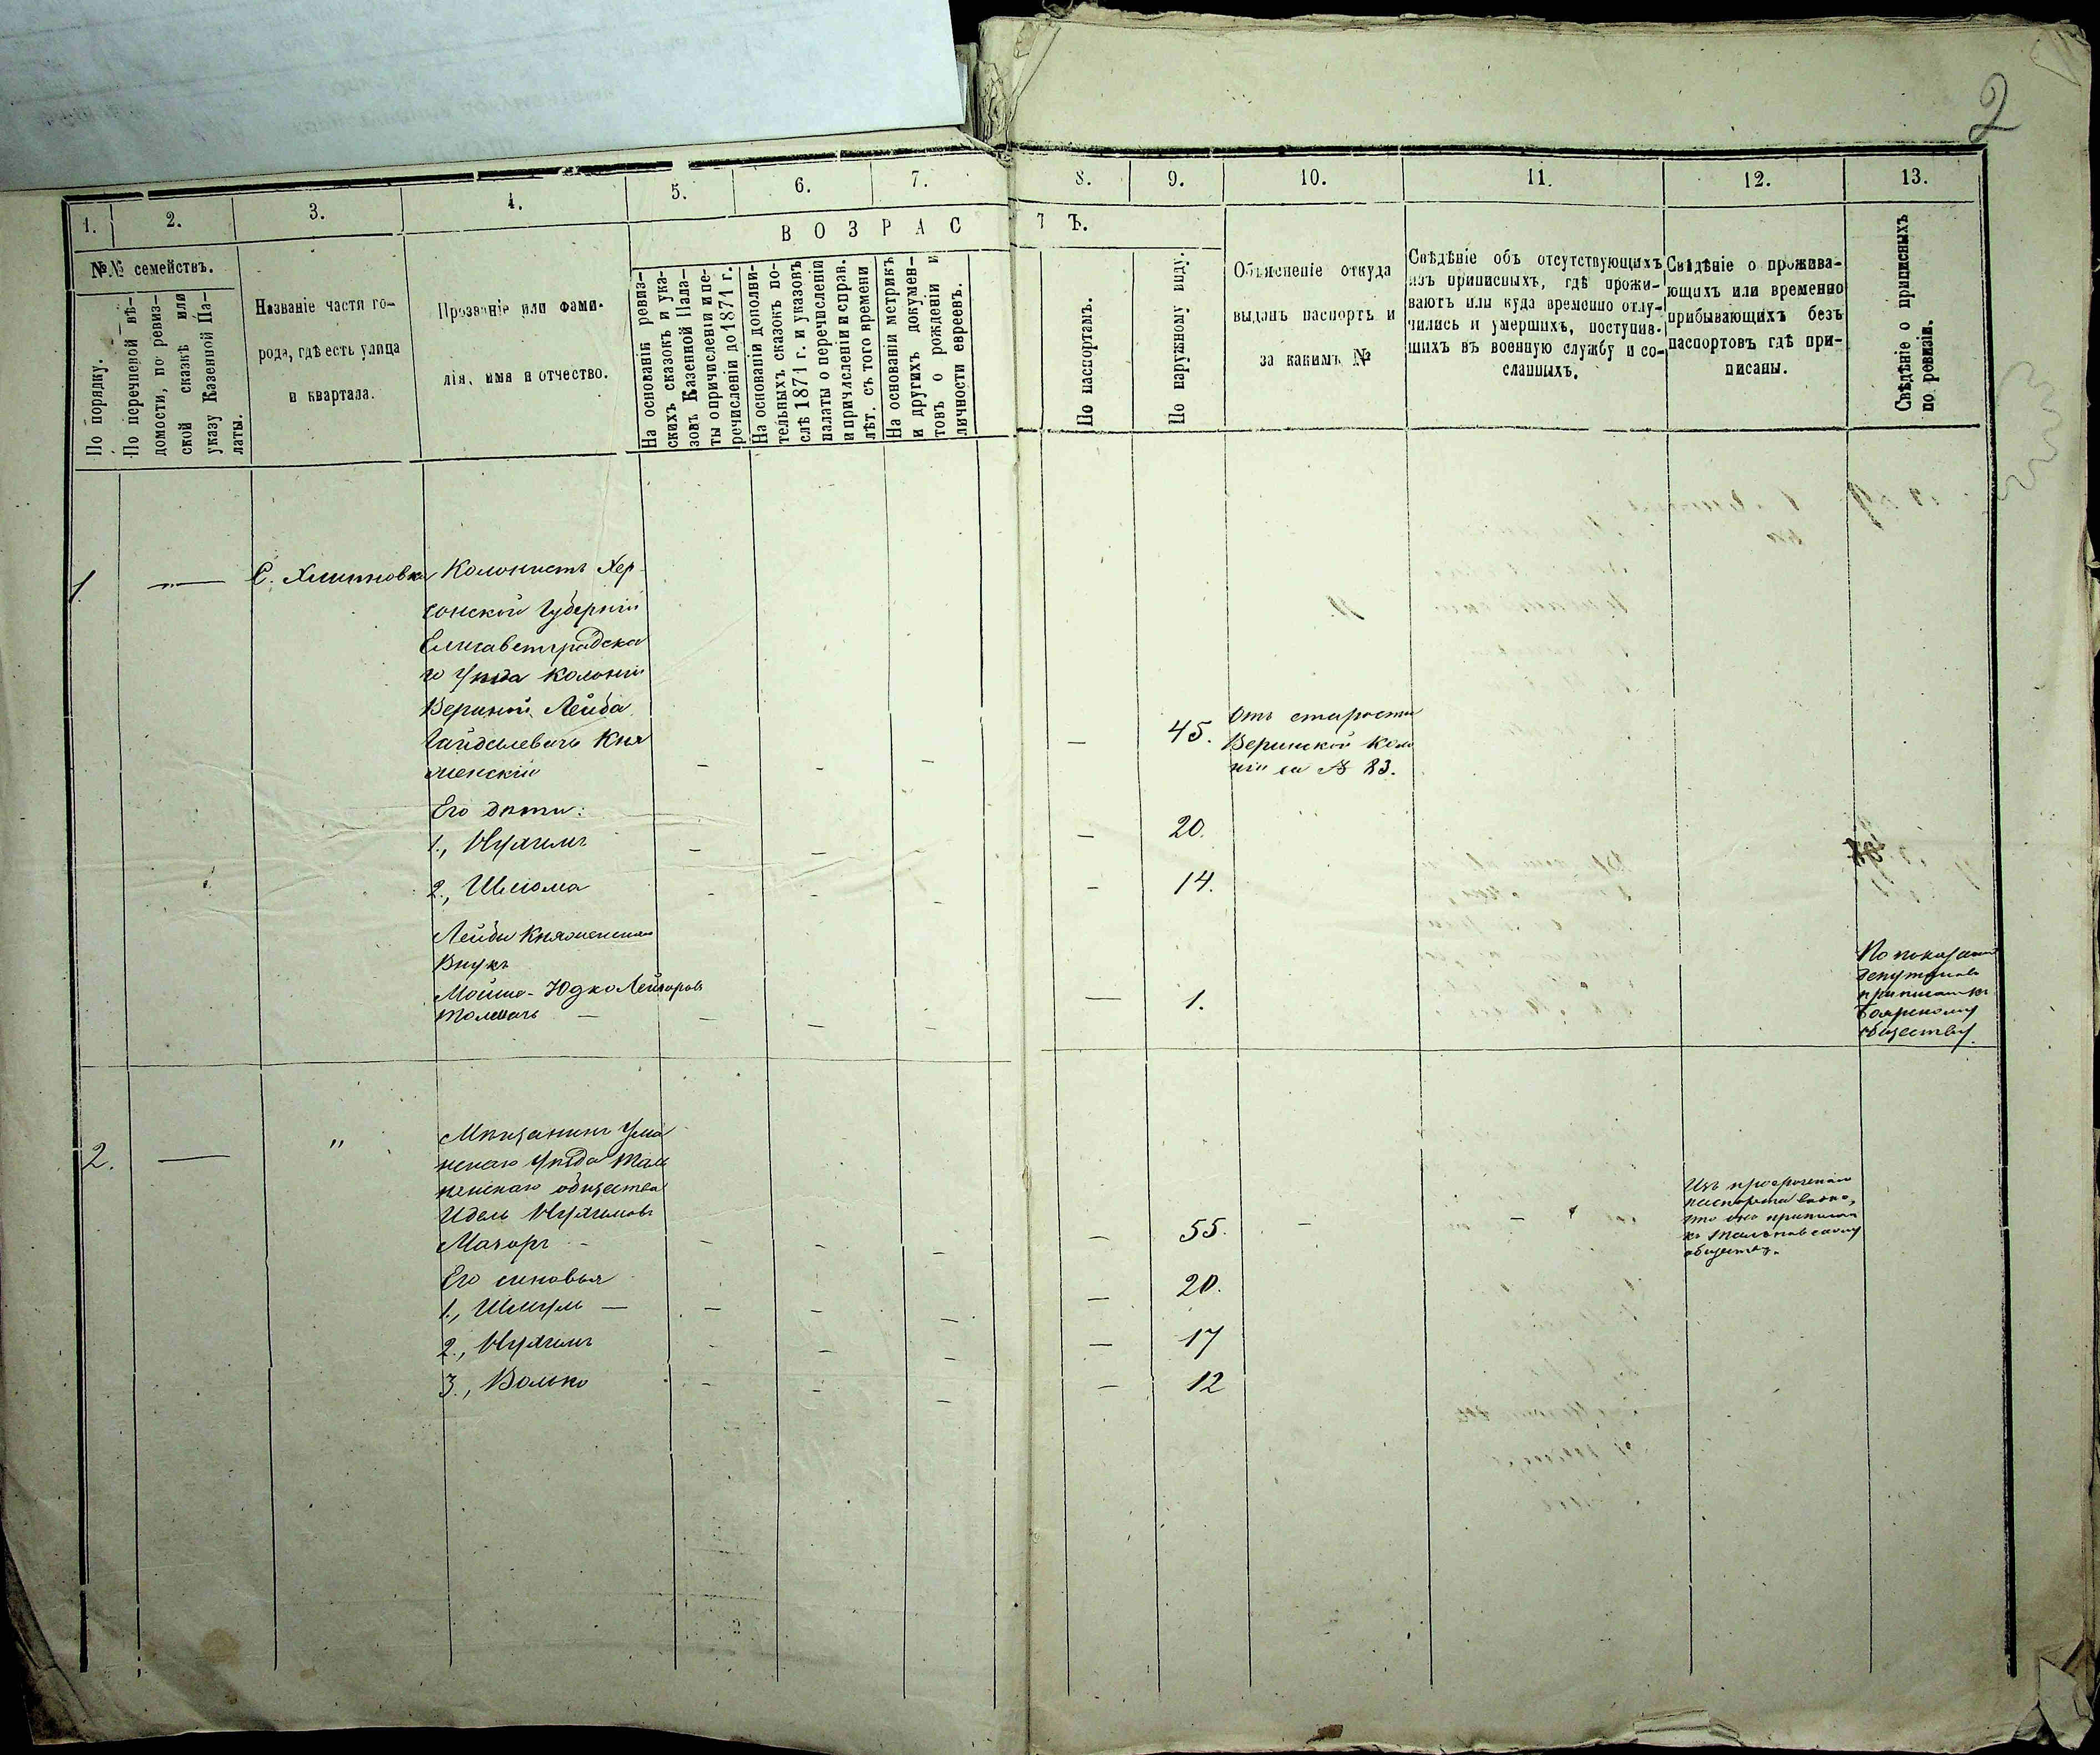 2
1. 2. 3. 4. 5. 6. 7. 8. 9. 10. 11. 12. 13.
№№ семействъ.
По порядку.
По перечневой вѣ-
домости, по ревиз-
ской сказкѣ или
указу Казенной Па-
латы.
Названіе части го-
рода, гдѣ есть улица
и квартала.
Прозваніе или фами-
лія, имя и отчество.
ВОЗРАС
ТЪ.
На основаніи ревиз-
скихъ сказокъ и ука-
зовъ Казенной Пала-
ты о причисленіи и пе-
речисленіи до 1871 г.
На основаніи дополни-
тельныхъ сказокъ по-
слѣ 1871 г. и указовъ
палаты о перечисленіи
и причисленіи и справ.
лѣт. съ того времени
На основаніи метрикъ
и другихъ докумен-
товъ о рожденіи и
личности евреевъ.
По паспортамъ.
По наружному виду.
Объясненіе откуда
выданъ паспортъ и
за какимъ №
Свѣдѣніе объ отсутствующихъ
изъ приписныхъ, гдѣ прожи-
ваютъ или куда временно отлу-
чились и умершихъ, поступив-
шихъ въ военную службу и со-
сланныхъ.
Свѣдѣніе о прожива-
ющихъ или временно
прибывающихъ безъ
паспортовъ гдѣ при-
писаны.
Свѣдѣніе о приписныхъ
по ревизіи.
1. — С. Хлипновка Колонистъ Хер
сонской Губерніи
Елисаветградска
го Уѣзда колоніи
Вериной Лейба
Гайдалевичъ Кня
женскій — — — — 45.
Отъ старосты
Веринской Коло
ніи за № 83.
Его дѣти:
1., Нухимъ — — — — 20.
2., Шлиома — — — — 14.
Лейбы Княженскаго
Внукъ
Мошко-Юдко Лейзоровъ
Толмачъ — — — — — 1.
По показанію
депутатовъ
приписанъ къ
Боярскому
обществу.
2. — " Мѣщанинъ Ума
нскаго Уѣзда Таль
ненскаго общества
Идель Нухимовъ
Мазоръ — — — — — 55. — —
Изъ просроченнаго
паспорта видно,
что онъ приписанъ
къ Тальновскому
обществу.
Его сыновья
1., Шмуль — — — — — 20.
2., Нухимъ — — — — 17
3., Волько — — — — 12